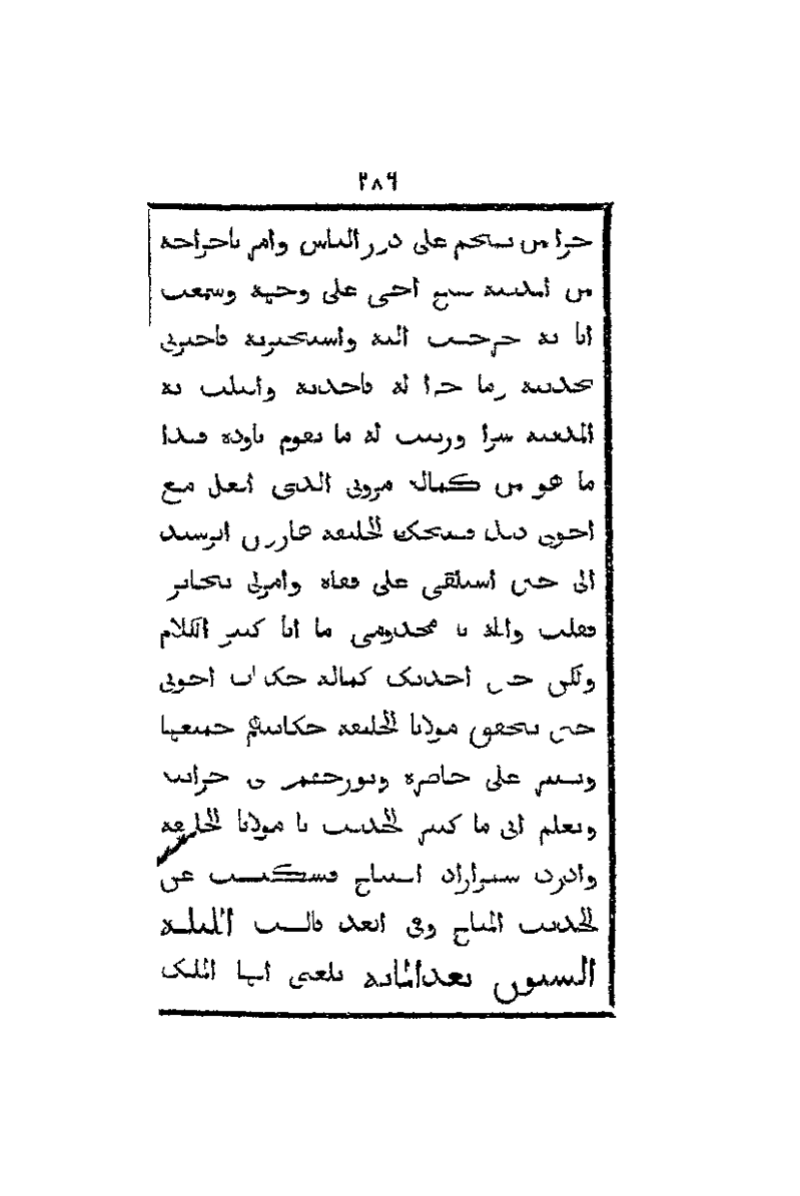 جزا من يتهجم على دور الناس وامر باخراجه
من المدينه اخي على وجهه وسمعت
انا به خرجت اليه واستخبرته فاخبرني
بحديثه وما جرا له فاخدته واتيت به
المدينه سرا ورتبت له ما يقوم باوده فهدا
ما هو من كمالة مروتي الدي افعل مع
اخوتي فضحك الخليفه هارون الرشيد
الى حتى استلقى على قفاه وامرلي
فقلت والله يا مخدومي ما انا كثير الكلام
ولكن حتى احدثك كمالة حكايات اخوتي
حتى يتحقق مولانا الخليفة حكاياتهم جميعها
على خاطره ويورخهم في خزانته
ويعلم اني ما كثير الحديث يا مولانا الخليفة
وادرك شهرازاد الصباح فسكتت عن
الحديث المباح وفي الغد قالت الليلة
الستون بعد المائة بلغني ايها الملك